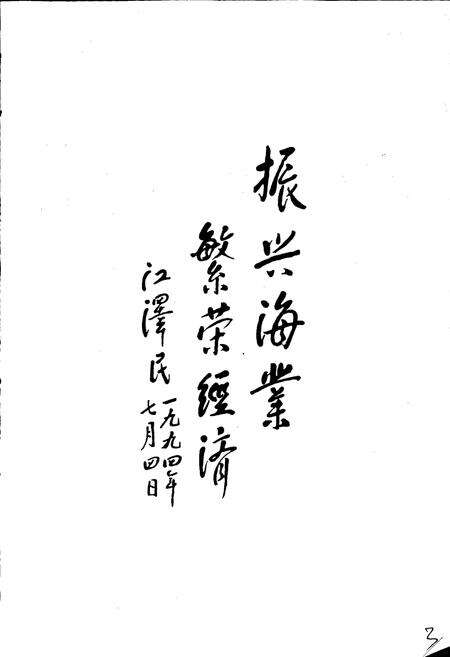 振兴海業
繁荣經済
江澤民
一九九四年
七月四日
3